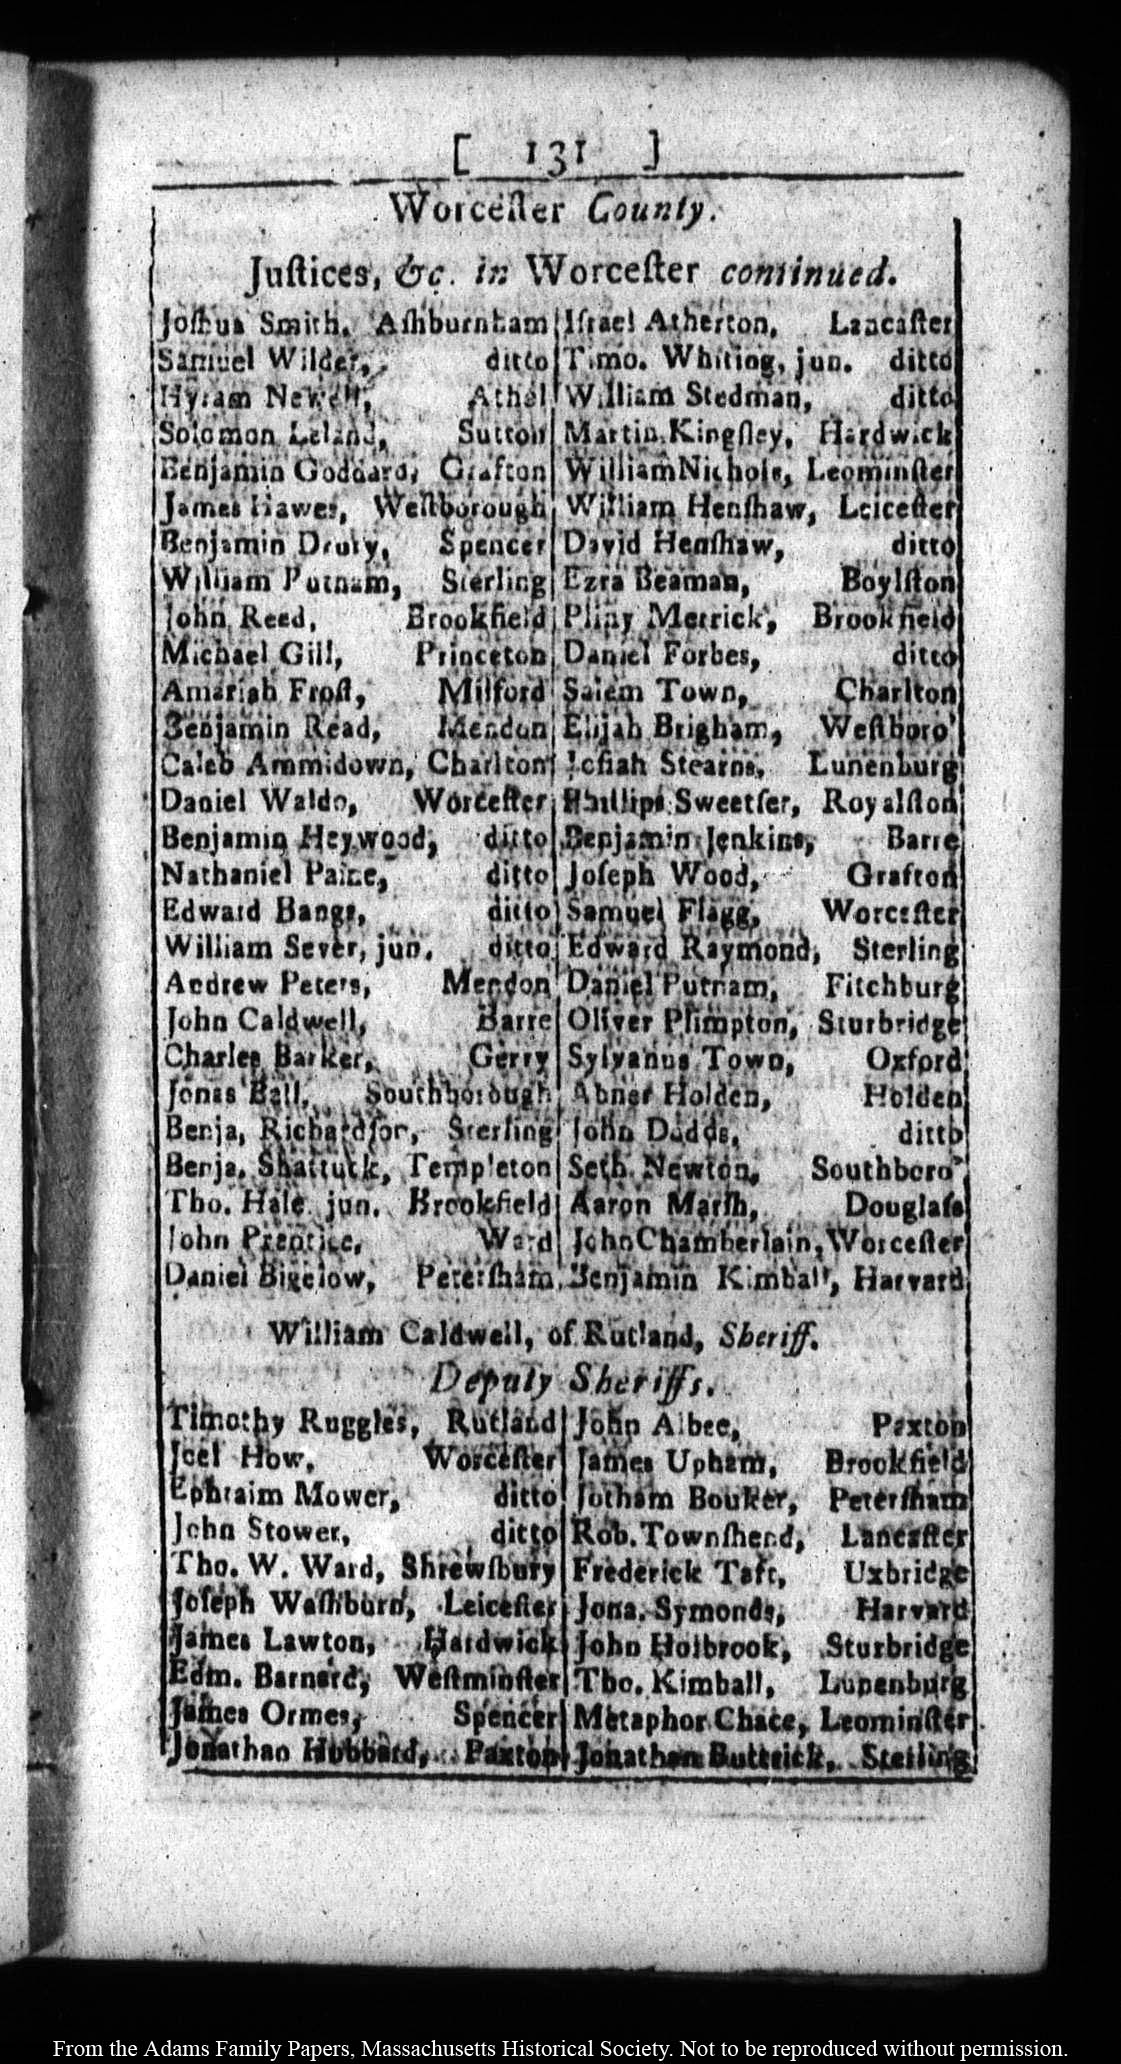 [ 131 ]
Worceſter County.
Juſtices, &c. in Worceſter continued.
Joſhua Smith, Aſhburnham
Samuel Wilder, ditto
Hyram Newell, Athol
Solomon Leland, Sutton
Benjamin Goddard, Grafton
James Hawes, Weſtborough
Benjamin Drury, Spencer
William Putnam, Sterling
John Reed, Brookfield
Michael Gill, Princeton
Amariah Froſt, Milford
Benjamin Read, Mendon
Caleb Ammidown, Charlton
Daniel Waldo, Worceſter
Benjamin Heywood, ditto
Nathaniel Paine, ditto
Edward Bangs, ditto
William Sever, jun. ditto
Andrew Peters, Mendon
John Caldwell, Barre
Charles Barker, Gerry
Jonas Ball, Southborough
Benja, Richardſon, Sterling
Benja. Shattuck, Templeton
Tho. Hale jun. Brookfield
John Prentice, Ward
Daniel Bigelow, Peterſham
Iſrael Atherton, Lancaſter
Timo. Whiting, jun. ditto
William Stedman, ditto
Martin Kingſley, Hardwick
William Nichols, Leominſter
William Henſhaw, Leiceſter
David Henſhaw, ditto
Ezra Beaman, Boylſton
Pliny Merrick, Brookfield
Daniel Forbes, ditto
Salem Town, Charlton
Elijah Brigham, Weſtboro'
Joſiah Stearns, Lunenburg
Phillips Sweetſer, Royalſton
Benjamin Jenkins, Barre
Joſeph Wood, Grafton
Samuel Flagg, Worceſter
Edward Raymond, Sterling
Daniel Putnam, Fitchburg
Oliver Plimpton, Sturbridge
Sylvanus Town, Oxford
Abner Holden, Holden
John Dodds, ditto
Seth Newton, Southboro'
Aaron Marſh, Douglaſs
John Chamberlain, Worceſter
Benjamin Kimball, Harvard
William Caldwell, of Rutland, Sheriff.
Deputy Sheriffs.
Timothy Ruggles, Rutland
Joel How, Worceſter
Ephraim Mower, ditto
John Stower, ditto
Tho. W. Ward, Shrewſbury
Joſeph Waſhburn, Leiceſter
James Lawton, Hardwick
Edm. Barnard, Weſtminſter
James Ormes, Spencer
Jonathan Hubbard, Paxton
John Albee, Paxton
James Upham, Brookfield
Jotham Bouker, Peterſham
Rob. Townſhend, Lancaſter
Frederick Taft, Uxbridge
Jona. Symonds, Harvard
John Holbrook, Sturbridge
Tho. Kimball, Lunenburg
Metaphor Chace, Leominſter
Jonathan Buttrick, Sterling
From the Adams Family Papers, Massachusetts Historical Society. Not to be reproduced without permission.